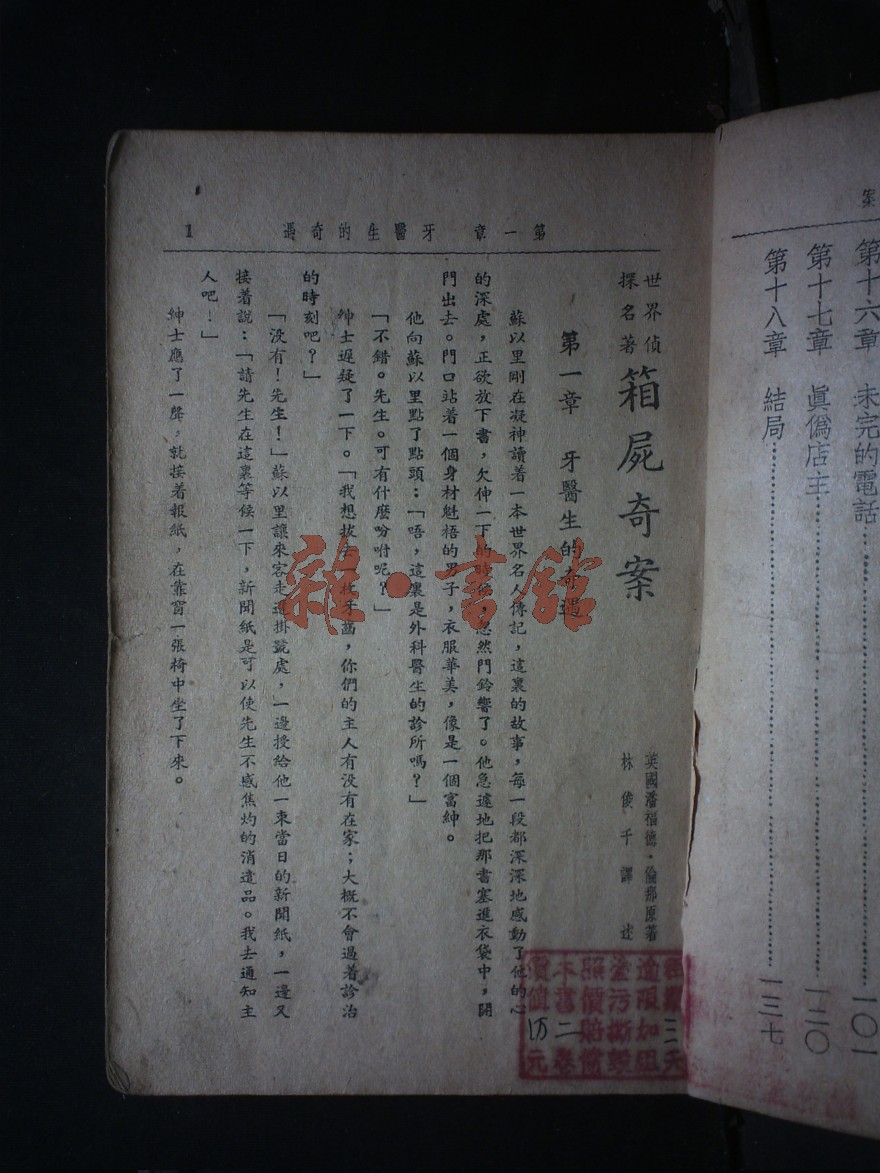 案
第十六章　未完的電話……一〇一
第十七章　眞僞店主……一二〇
第十八章　結局……一三七
第一章　牙醫生的奇遇
1
世界偵
探名著
箱屍奇案
英國潘福德·倫那原著
林俊千譯述
第一章　牙醫生的奇遇
蘇以里剛在凝神讀着一本世界名人傳記，這裏的故事，每一段都深深地感動了他的心
的深處，正欲放下書，欠伸一下的時候，忽然門鈴響了。他急遽地把那書塞進衣袋中，開
門出去。門口站着一個身材魁梧的男子，衣服華美，像是一個富紳。
他向蘇以里點了點頭：「唔，這裏是外科醫生的診所嗎？」
「不錯。先生。可有什麼吩咐呢？」
紳士遲疑了一下。「我想拔去一枚牙齒，你們的主人有没有在家；大概不會過着診治
的時刻吧？」
「没有！先生！」蘇以里讓來客走進掛號處，一邊授給他一束當日的新聞紙，一邊又
接着說：「請先生在這裏等候一下，新聞紙是可以使先生不感焦灼的消遣品。我去通知主
人吧！」
紳士應了一聲，就接着報紙，在靠窗一張椅中坐了下來。
雜·書館
租期三天
逾限加租
塗污撕毀
照價賠償
本書二卷
價值 元